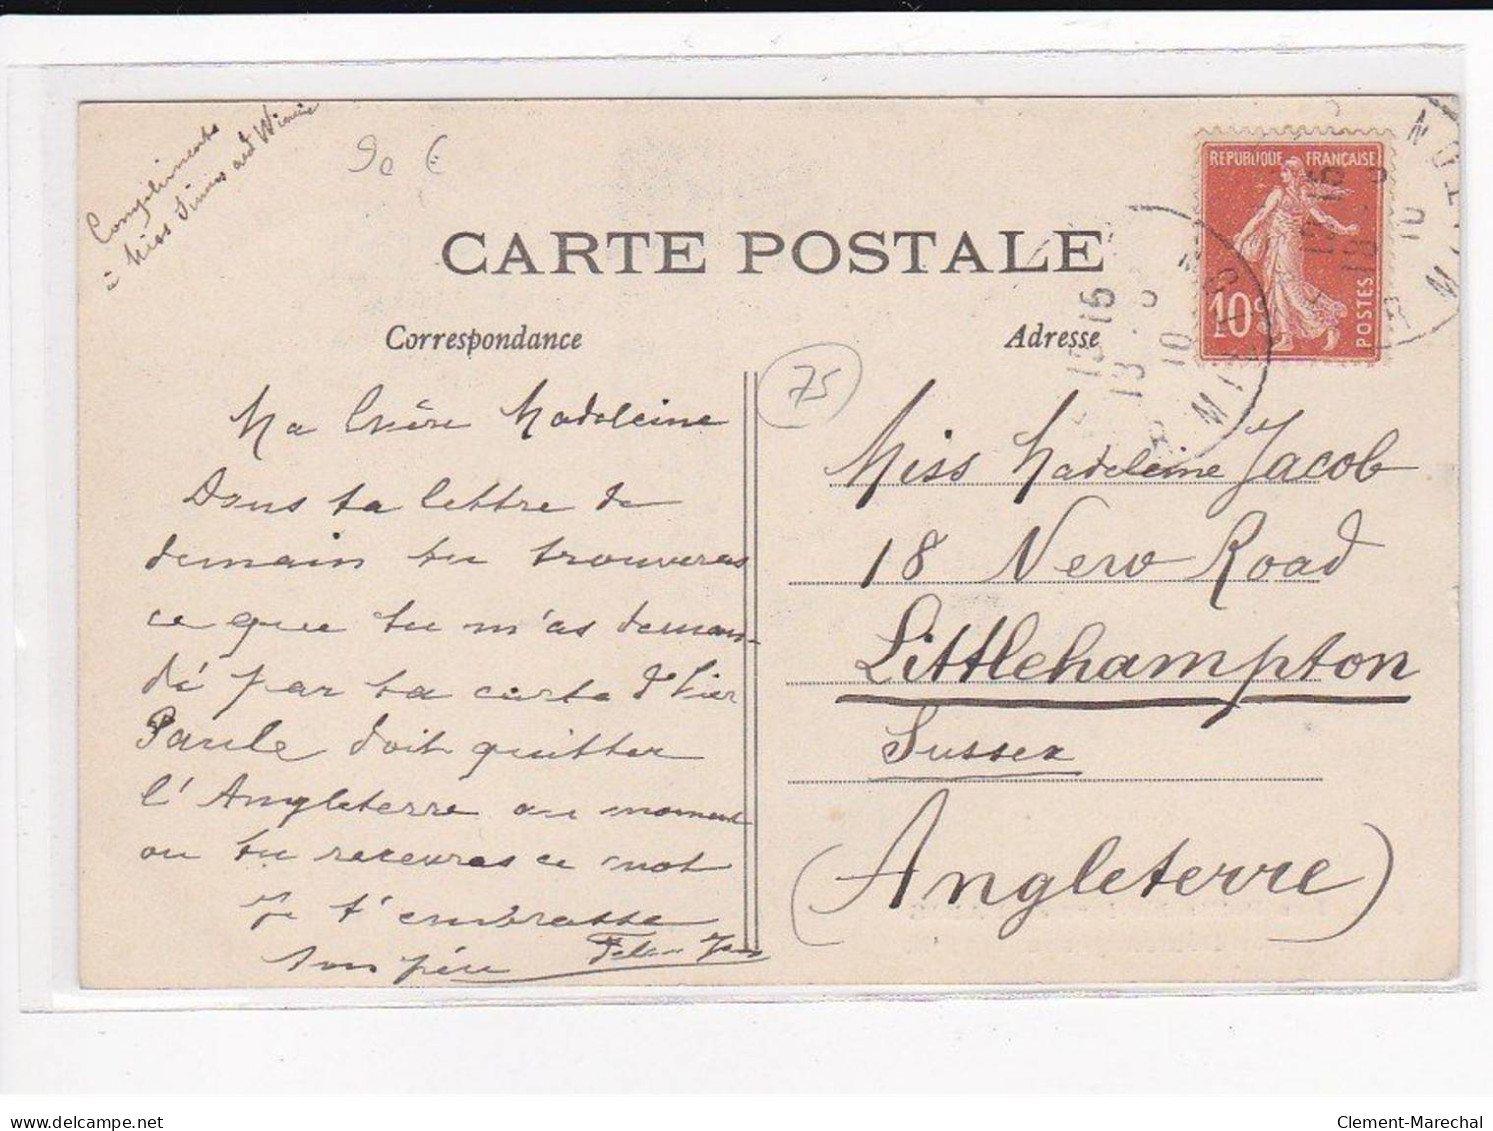 Compliments
à Miss Simms and Winnie
90 €
CARTE POSTALE
Correspondance
Adresse
REPUBLIQUE FRANÇAISE
10c
POSTES
75
Ma Chère Madeleine
Dans ta lettre de
demain tu trouveras
ce que tu m'as deman-
dé par ta carte d'hier
Paule doit quitter
l'Angleterre au moment
ou tu recevras ce mot
Je t'embrasse
Ton père
Miss Madeleine Jacob
18 New Road
Littlehampton
Sussex
(Angleterre)
www.delcampe.net
Clement-Marechal